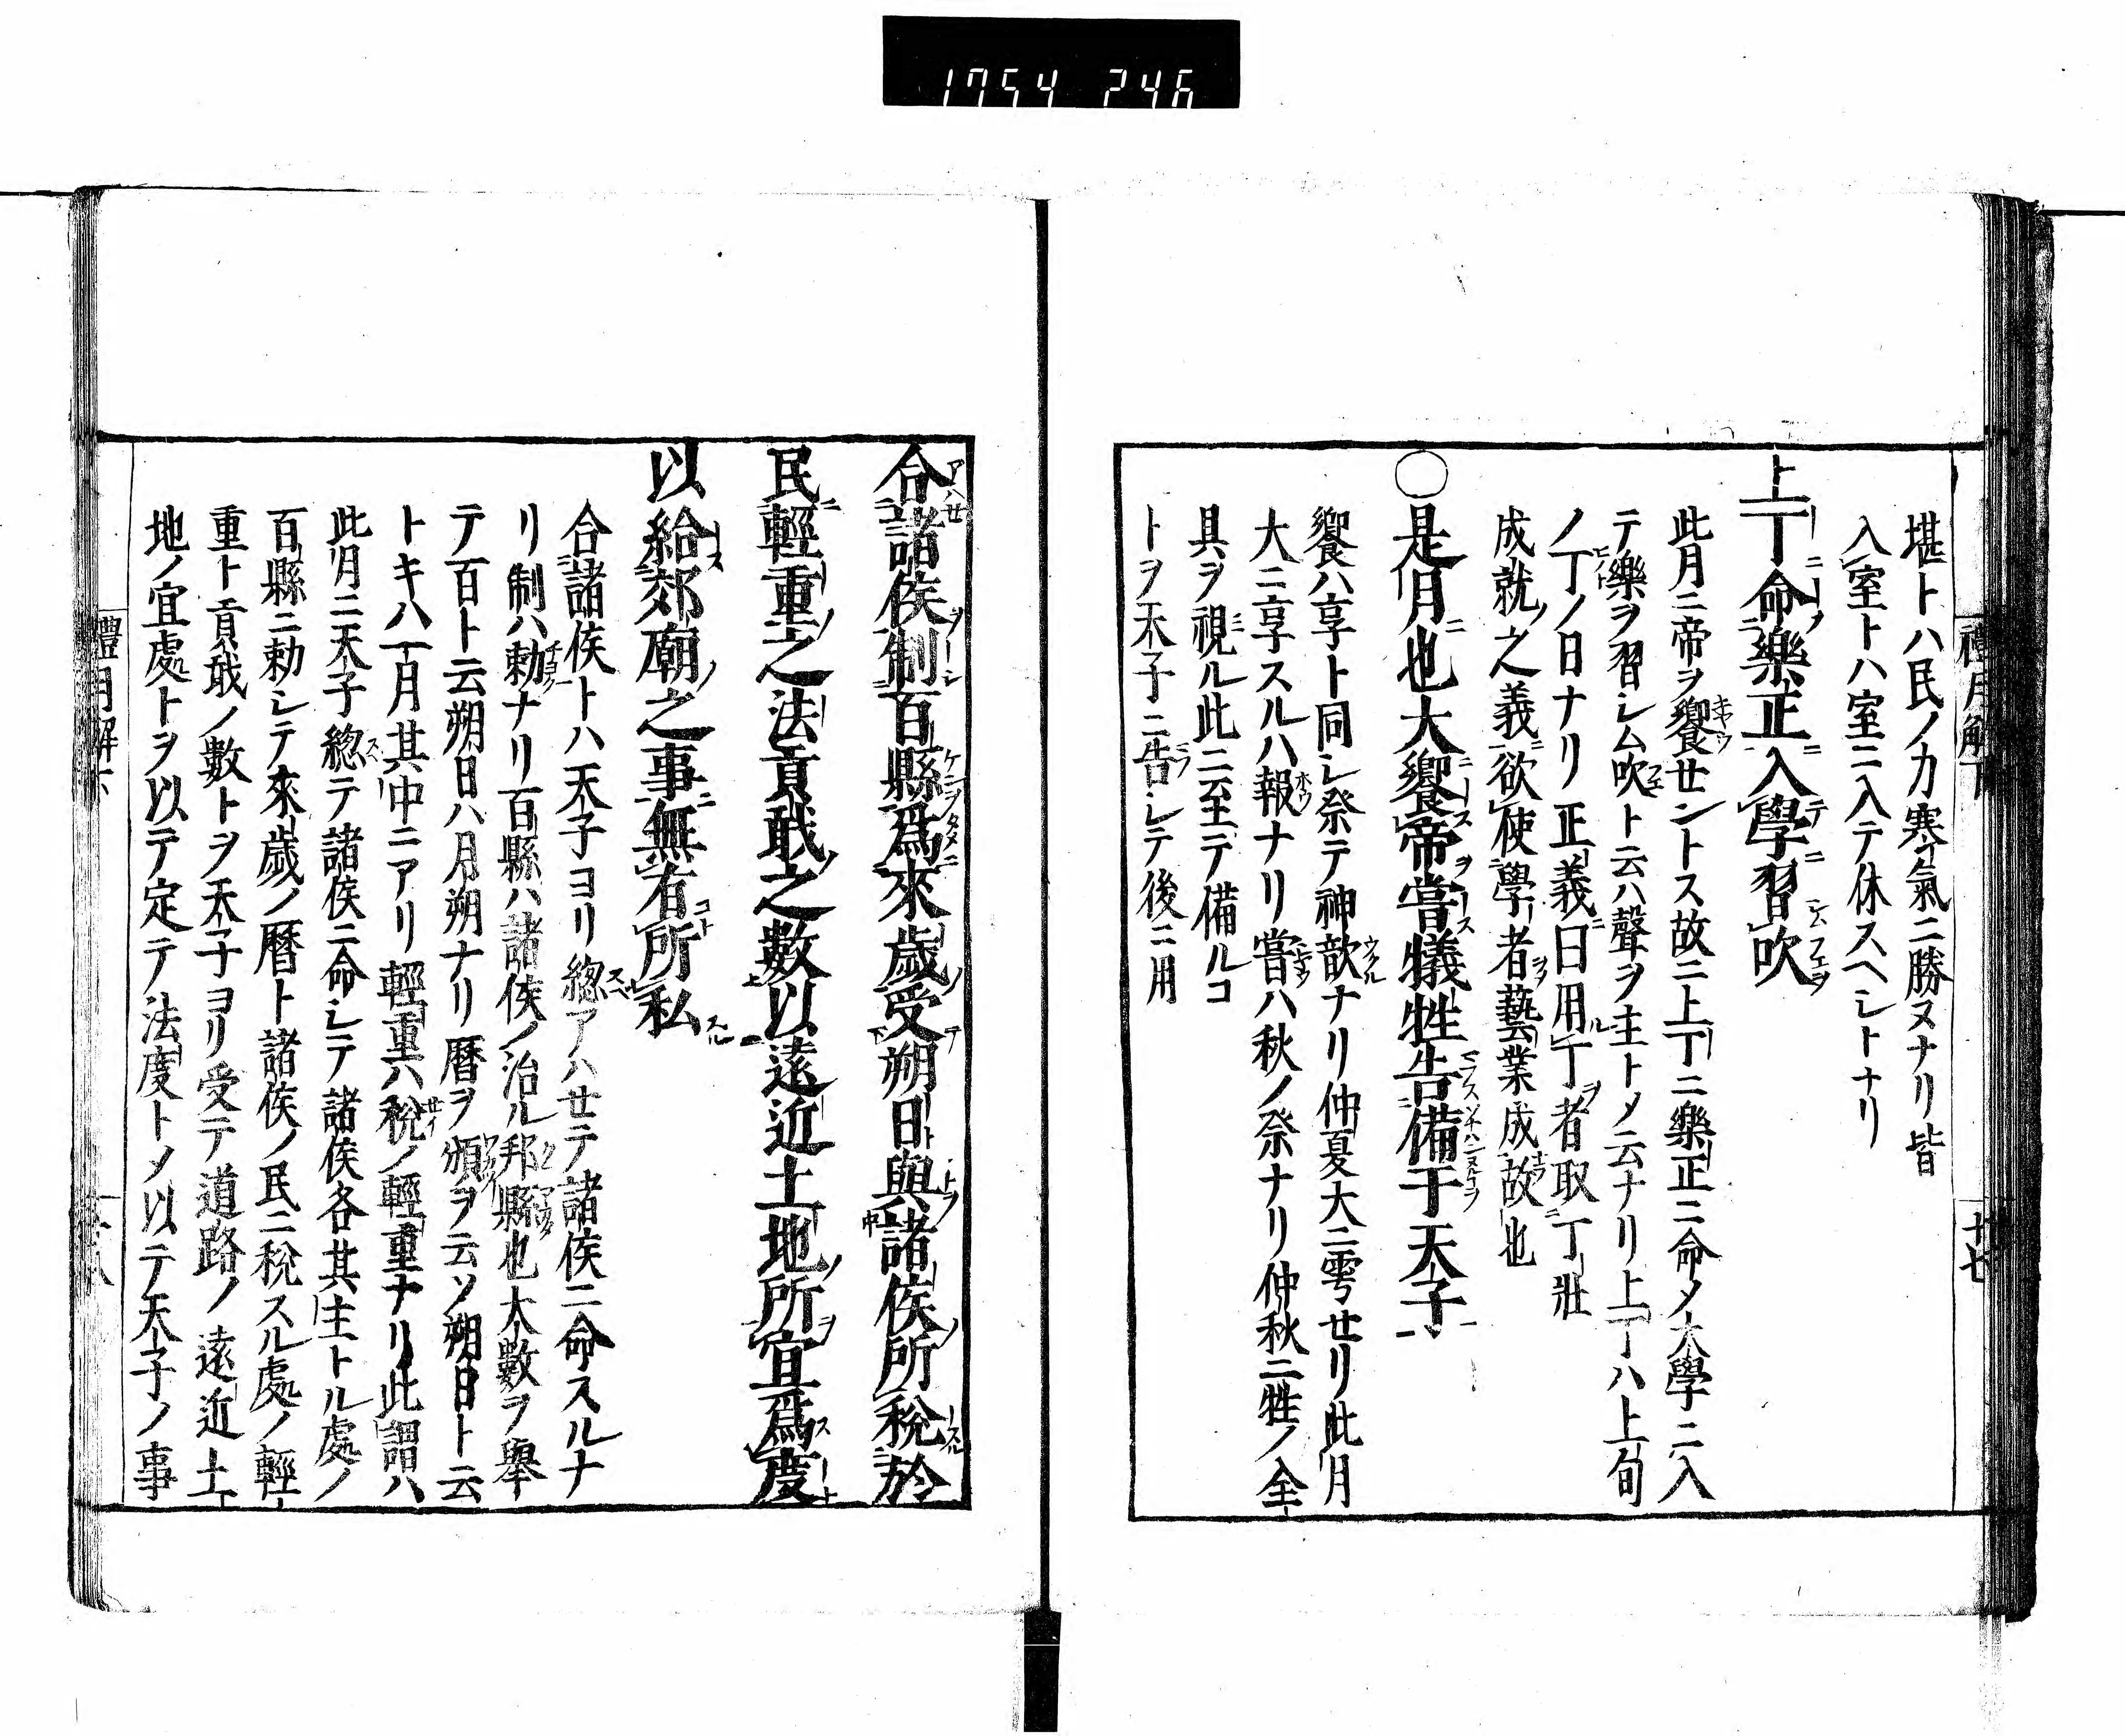 1754 246
禮月解下
十七
堪トハ民ノ力寒氣ニ勝ヌナリ皆
入室トハ室ニ入テ休スヘシトナリ
上丁命樂正入學習吹
此月ニ帝ヲ饗セントス故ニ上丁ニ樂正ニ命メ大學ニ入
テ樂ヲ習シム吹ト云ハ聲ヲ主トメ云ナリ上丁ハ上旬
ノ丁ノ日ナリ正義曰用丁者取丁壯
成就之義欲使學者藝業成故也
○是月也大饗帝嘗犧牲告備于天子
饗ハ享ト同シ祭テ神歆ナリ仲夏大ニ雩セリ此月
大ニ享スルハ報ナリ嘗ハ秋ノ祭ナリ仲秋ニ牲ノ全
具ヲ視ル此ニ至テ備ルコ
トヲ天子ニ告シテ後ニ用
合諸侯制百縣爲來歲受朔日與諸侯所稅於
民輕重之法貢戝之數以遠近土地所宜爲度
以給郊廟之事無有所私
合諸侯トハ天子ヨリ總アハセテ諸侯ニ命スルナ
リ制ハ勅ナリ百縣ハ諸侯ノ治ル邦縣也大數ヲ舉
テ百ト云朔日ハ月朔ナリ暦ヲ頒ヲ云ソ朔日ト云
トキハ一月其中ニアリ輕重ハ稅ノ輕重ナリ此謂ハ
此月ニ天子總テ諸侯ニ命シテ諸侯各其主トル處ノ
百縣ニ勅シテ來歲ノ暦ト諸侯ノ民ニ稅スル處ノ輕
重ト貢戝ノ數トヲ天子ヨリ受テ道路ノ遠近土
地ノ宜處トヲ以テ定テ法度トメ以テ天子ノ事
禮月解下